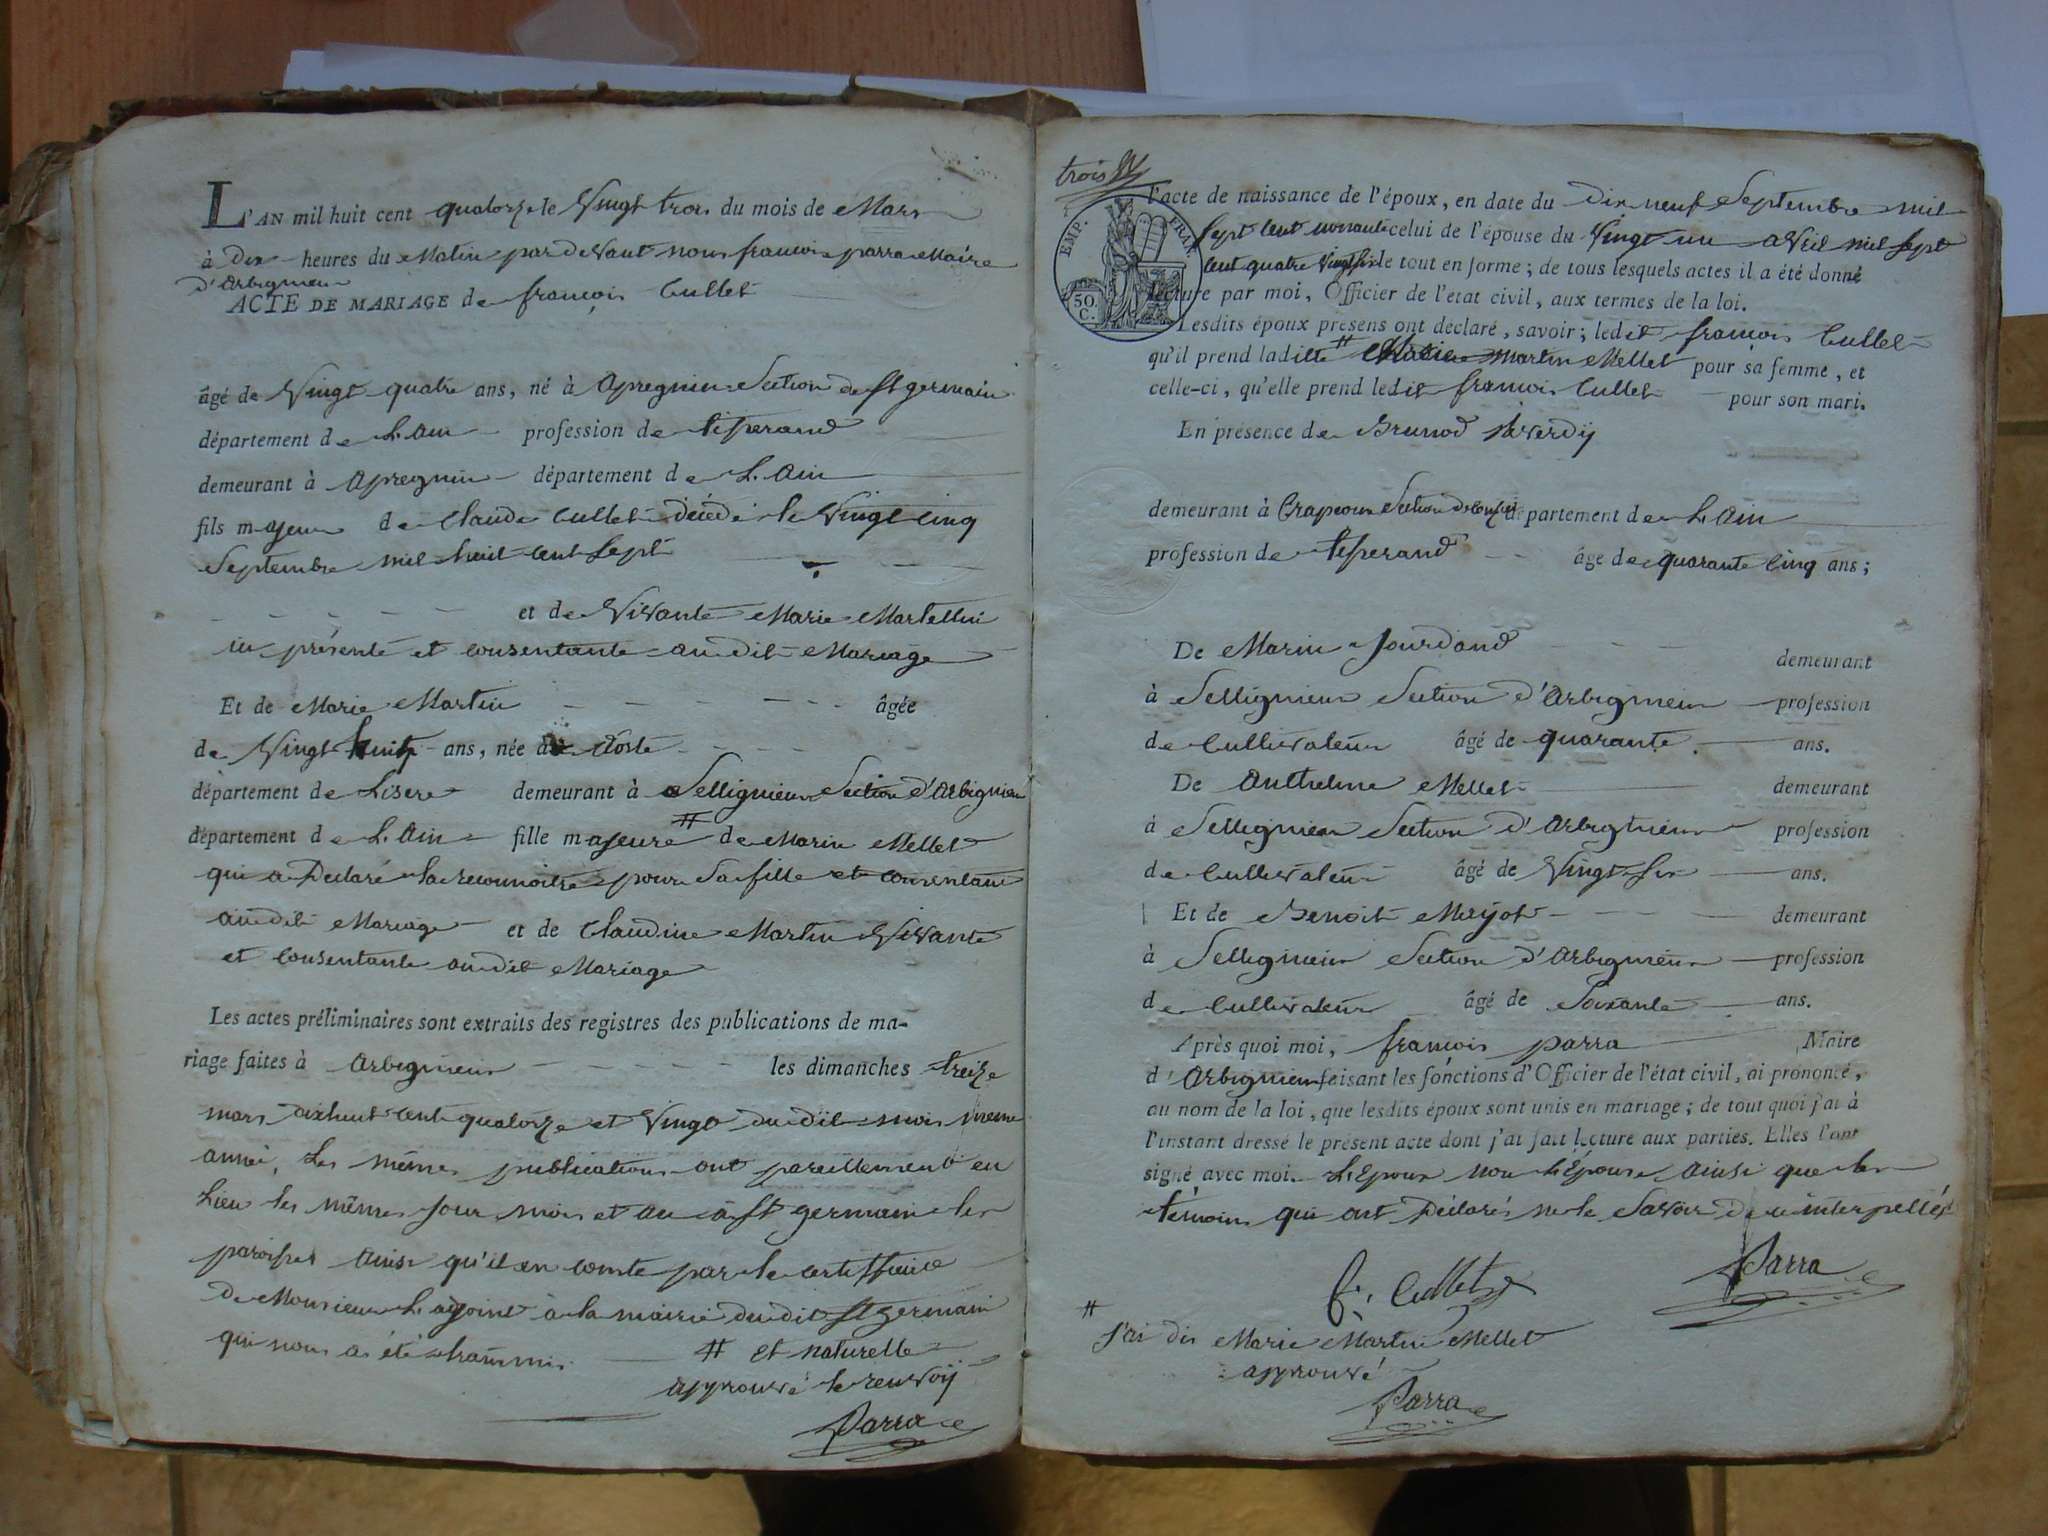 L'AN mil huit cent quatorze le Vingt trois du mois de Mars
à Dix heures du Matin par deVant nous francois parra Maire
d'Arbignieu
ACTE DE MARIAGE de françois Cullet
âgé de Vingt quatre ans, né à Apregnin Section de St germain
département de L'ain profession de tisserand
demeurant à Apregnin département de L'ain
fils majeur de Claude Cullet décédé le Vingt cinq
Septembre mil huit cent Sept
et de ViVante Marie Martellin
ici présente et consentante au dit Mariage
Et de Marie Martin âgée
de Vingt huit ans, née à Aoste
département de Lisere demeurant à Sellignieux Section d'Arbignieu
département de L'ain fille majeure # de Marin Mellet
qui a Déclaré la reconnoitre pour Sa fille et consentant
au dit Mariage et de Claudine Martin ViVante
et consentante au dit Mariage
Les actes préliminaires sont extraits des registres des publications de ma-
riage faites à Arbignieu les dimanches treize
mars dixhuit cent quatorze et Vingt du dit mois meme
année, Les mêmes publications ont pareillement eu
Lieu les mêmes jour mois et an à St germain les
paroisses ainsi qu'il en conste par le certifficat
De Monsieur L'adjoint à la mairie du dit St germain
qui nous a été transmis. # et naturelle
approuvé le renvoij
Parra
trois
EMP. FRAN.
50. C.
l'acte de naissance de l'époux, en date du Dix neuf Septembre mil
Sept cent nonante celui de l'épouse du Vingt un aVril mil Sept
cent quatre Vingt Six le tout en forme ; de tous lesquels actes il a été donné
lecture par moi, Officier de l'etat civil, aux termes de la loi.
Lesdits époux présens ont déclaré, savoir ; ledit françois Cullet
qu'il prend ladite # Martin Mellet pour sa femme, et
celle-ci, qu'elle prend ledit francois Cullet pour son mari.
En présence de Brunod
demeurant à Crapeou Section de département de L'ain
profession de tisserand âgé de quarante Cinq ans ;
De Marin Jourdand demeurant
à Sellignieux Section d'Arbignieu profession
de CultiVateur âgé de quarante. ans.
De Anthelme Mellet demeurant
à Sellignieu Section d'Arbignieu profession
de CultiVateur âgé de Vingt Six ans.
Et de Benoit Meyot demeurant
à Sellignieu Section d'Arbignieu profession
de CultiVateur âgé de Soixante ans.
Après quoi moi, francois parra Maire
d'Arbignieu faisant les fonctions d'Officier de l'état civil, ai prononcé,
au nom de la loi, que lesdits époux sont unis en mariage ; de tout quoi j'ai à
l'instant dressé le présent acte dont j'ai fait lecture aux parties. Elles l'ont
signé avec moi. L'Epoux non L'Epouse ainsi que les
témoins qui ont Déclarés ne le Savoir de ce interpellés
f. Cullet Parra
# J'ai dis Marie Martin Mellet
approuvé
Parra